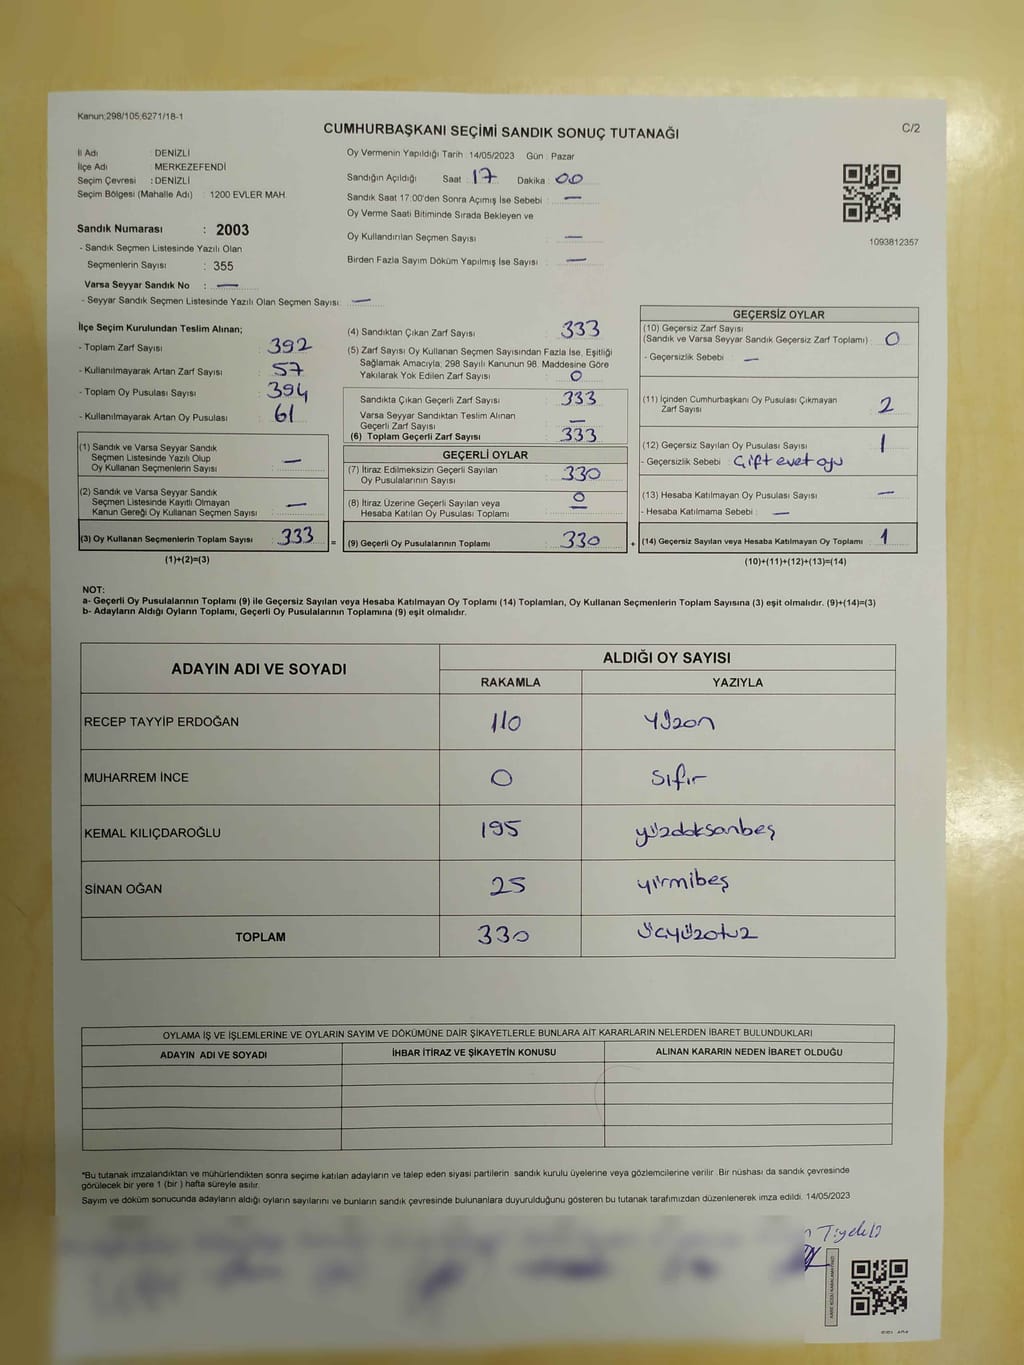 Kanun;298/105;6271/18-1
CUMHURBAŞKANI SEÇİMİ SANDIK SONUÇ TUTANAĞI
C/2
İl Adı : DENİZLİ
İlçe Adı : MERKEZEFENDİ
Seçim Çevresi : DENİZLİ
Seçim Bölgesi (Mahalle Adı) : 1200 EVLER MAH
Sandık Numarası : 2003
- Sandık Seçmen Listesinde Yazılı Olan
Seçmenlerin Sayısı : 355
Varsa Seyyar Sandık No : —
- Seyyar Sandık Seçmen Listesinde Yazılı Olan Seçmen Sayısı: —
Oy Vermenin Yapıldığı Tarih : 14/05/2023 Gün : Pazar
Sandığın Açıldığı Saat : 17 Dakika : 00
Sandık Saat 17:00'den Sonra Açımış İse Sebebi : —
Oy Verme Saati Bitiminde Sırada Bekleyen ve
Oy Kullandırılan Seçmen Sayısı : —
Birden Fazla Sayım Döküm Yapılmış İse Sayısı : —
1093812357
İlçe Seçim Kurulundan Teslim Alınan;
- Toplam Zarf Sayısı : 392
- Kullanılmayarak Artan Zarf Sayısı : 57
- Toplam Oy Pusulası Sayısı : 394
- Kullanılmayarak Artan Oy Pusulası : 61
(1) Sandık ve Varsa Seyyar Sandık
Seçmen Listesinde Yazılı Olup
Oy Kullanan Seçmenlerin Sayısı : —
(2) Sandık ve Varsa Seyyar Sandık
Seçmen Listesinde Kayıtlı Olmayan
Kanun Gereği Oy Kullanan Seçmen Sayısı : —
(3) Oy Kullanan Seçmenlerin Toplam Sayısı : 333
(1)+(2)=(3)
(4) Sandıktan Çıkan Zarf Sayısı : 333
(5) Zarf Sayısı Oy Kullanan Seçmen Sayısından Fazla İse, Eşitliği
Sağlamak Amacıyla, 298 Sayılı Kanunun 98. Maddesine Göre
Yakılarak Yok Edilen Zarf Sayısı : 0
Sandıkta Çıkan Geçerli Zarf Sayısı : 333
Varsa Seyyar Sandıktan Teslim Alınan
Geçerli Zarf Sayısı : —
(6) Toplam Geçerli Zarf Sayısı : 333
GEÇERLİ OYLAR
(7) İtiraz Edilmeksizin Geçerli Sayılan
Oy Pusulalarının Sayısı : 330
(8) İtiraz Üzerine Geçerli Sayılan veya
Hesaba Katılan Oy Pusulası Toplamı : 0
= (9) Geçerli Oy Pusulalarının Toplamı : 330
GEÇERSİZ OYLAR
(10) Geçersiz Zarf Sayısı
(Sandık ve Varsa Seyyar Sandık Geçersiz Zarf Toplamı) : 0
- Geçersizlik Sebebi : —
(11) İçinden Cumhurbaşkanı Oy Pusulası Çıkmayan
Zarf Sayısı : 2
(12) Geçersiz Sayılan Oy Pusulası Sayısı : 1
- Geçersizlik Sebebi : Çift evet oyu
(13) Hesaba Katılmayan Oy Pusulası Sayısı : —
- Hesaba Katılmama Sebebi : —
+ (14) Geçersiz Sayılan veya Hesaba Katılmayan Oy Toplamı : 1
(10)+(11)+(12)+(13)=(14)
NOT:
a- Geçerli Oy Pusulalarının Toplamı (9) ile Geçersiz Sayılan veya Hesaba Katılmayan Oy Toplamı (14) Toplamları, Oy Kullanan Seçmenlerin Toplam Sayısına (3) eşit olmalıdır. (9)+(14)=(3)
b- Adayların Aldığı Oyların Toplamı, Geçerli Oy Pusulalarının Toplamına (9) eşit olmalıdır.
ADAYIN ADI VE SOYADI
ALDIĞI OY SAYISI
RAKAMLA YAZIYLA
RECEP TAYYİP ERDOĞAN 110 yüzon
MUHARREM İNCE 0 Sıfır
KEMAL KILIÇDAROĞLU 195 yüzdoksanbeş
SİNAN OĞAN 25 yirmibeş
TOPLAM 330 üçyüzotuz
OYLAMA İŞ VE İŞLEMLERİNE VE OYLARIN SAYIM VE DÖKÜMÜNE DAİR ŞİKAYETLERLE BUNLARA AİT KARARLARIN NELERDEN İBARET BULUNDUKLARI
ADAYIN ADI VE SOYADI İHBAR İTİRAZ VE ŞİKAYETİN KONUSU ALINAN KARARIN NEDEN İBARET OLDUĞU
*Bu tutanak imzalandıktan ve mühürlendikten sonra seçime katılan adayların ve talep eden siyasi partilerin sandık kurulu üyelerine veya gözlemcilerine verilir. Bir nüshası da sandık çevresinde
görülecek bir yere 1 (bir) hafta süreyle asılır.
Sayım ve döküm sonucunda adayların aldığı oyların sayılarını ve bunların sandık çevresinde bulunanlara duyurulduğunu gösteren bu tutanak tarafımızdan düzenlenerek imza edildi. 14/05/2023